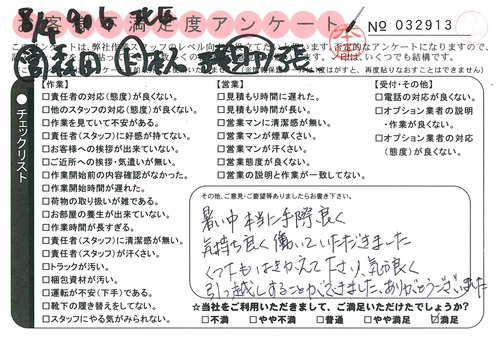 8/4 906
お客様不満足度アンケート
№ 032913
このアンケートは、弊社作業スタッフのレベル向上に役立てたいと思います。否定的なアンケートになりますので、
いくつでも結構です。
再度貼りなおすことはできません)
チェックリスト
【作業】
□責任者の対応(態度)が良くない。
□他のスタッフの対応(態度)が良くない。
□作業を見ていて不安がある。
□責任者(スタッフ)に好感が持てない。
□お客様への挨拶が出来ていない。
□ご近所への挨拶・気遣いが無い。
□作業開始前の内容確認がなかった。
□作業開始時間が遅れた。
□荷物の取り扱いが雑である。
□お部屋の養生が出来ていない。
□作業時間が長すぎる。
□責任者(スタッフ)に清潔感が無い。
□責任者(スタッフ)が汗くさい。
□トラックが汚い。
□梱包資材が汚い。
□運転が不安(下手)である。
□靴下の履き替えをしてない。
□スタッフにやる気がみられない。
【営業】
□見積もり時間に遅れた。
□見積もり時間が長い。
□営業マンに清潔感が無い。
□営業マンが煙草くさい。
□営業マンが汗くさい。
□営業態度が良くない。
□営業の説明と作業が一致してない。
【受付・その他】
□電話の対応が良くない。
□オプション業者の説明
・作業が良くない。
□オプション業者の対応
(態度)が良くない。
その他、ご意見・ご要望等ありましたらお書き下さい。
暑い中本当に手際良く
気持ち良く働いていただきました
くつ下もはきかえて下さり、気分良く
引っ越しすることができました、ありがとうございました
★当社をご利用いただきまして、ご満足いただけたでしょうか?
□不満 □やや不満 □普通 □やや満足 ☑満足